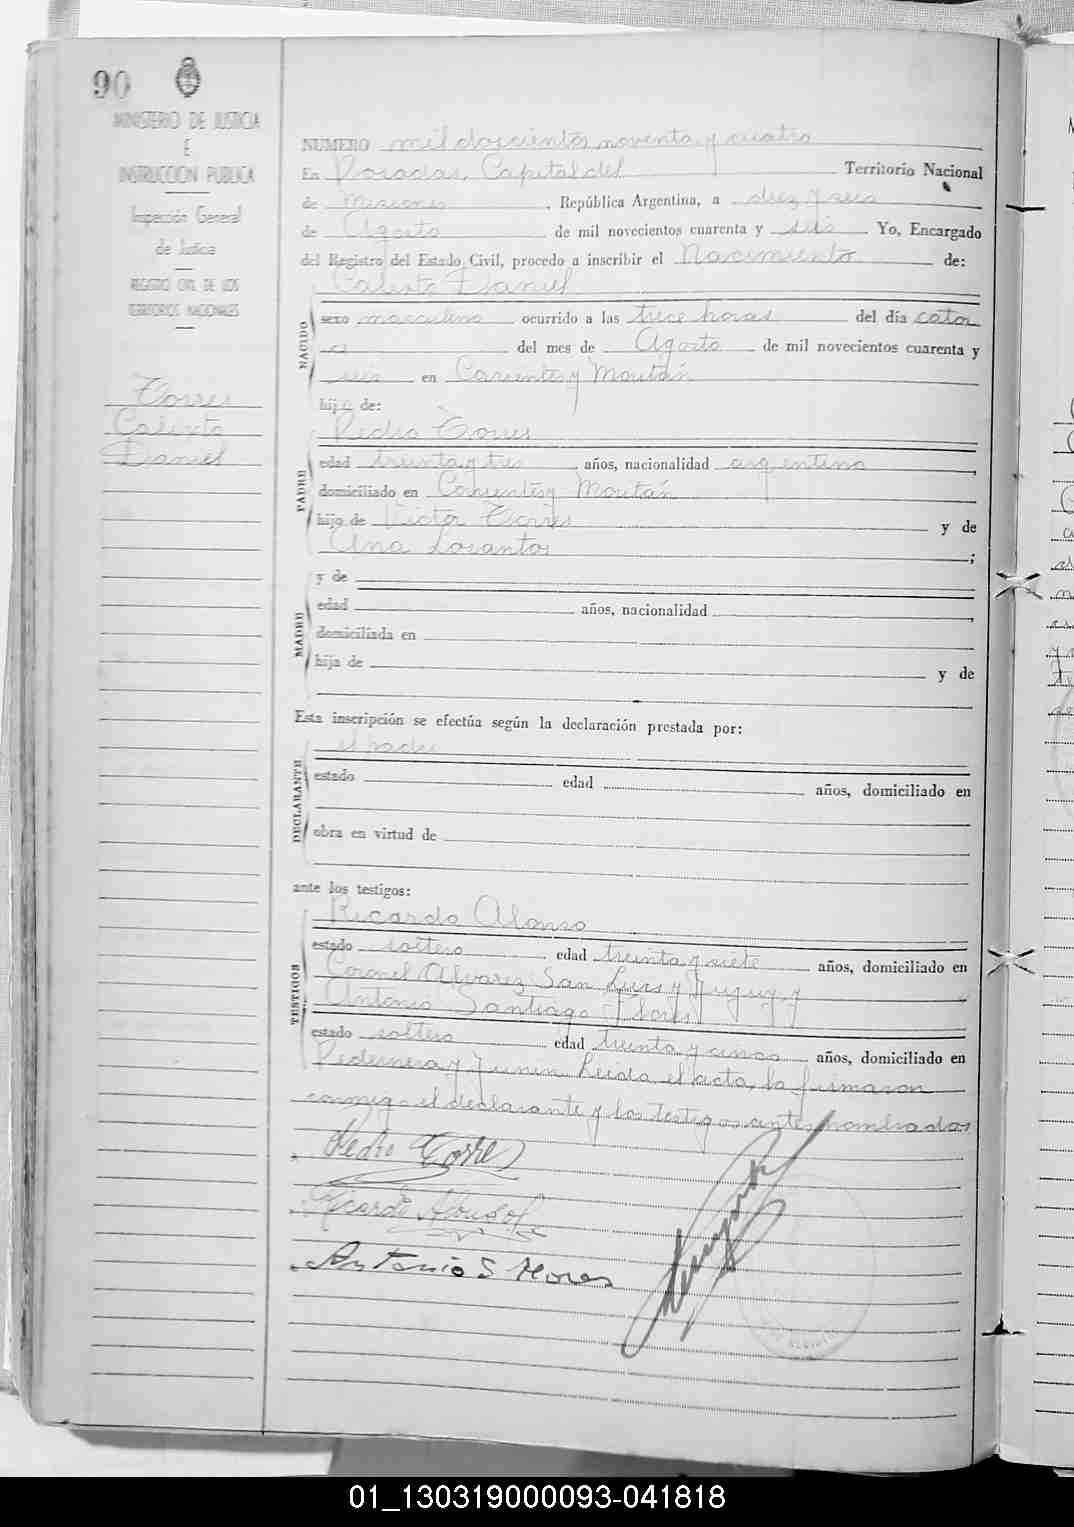 90
MINISTERIO DE JUSTICIA
E
INSTRUCCION PUBLICA
Inspección General
de Justicia
REGISTRO CIVIL DE LOS
TERRITORIOS NACIONALES
Torres
Calixto
Daniel
NUMERO mil doscientos noventa y cuatro
En Posadas, Capital del Territorio Nacional
de Misiones, República Argentina, a diez y seis
de Agosto de mil novecientos cuarenta y seis Yo, Encargado
del Registro del Estado Civil, procedo a inscribir el Nacimiento de:
Calixto Daniel
NACIDO
sexo masculino ocurrido a las trece horas del día cator
ce del mes de Agosto de mil novecientos cuarenta y
seis en Corrientes y Moután
hijo de:
Pedro Torres
PADRE
edad treinta y tres años, nacionalidad argentino,
domiciliado en Corrientes y Moután
hijo de Victor Torres y de
Ana Losantos;
y de
MADRE
edad años, nacionalidad
domiciliada en
hija de y de
Esta inscripción se efectúa según la declaración prestada por:
el padre
DECLARANTE
estado edad años, domiciliado en
obra en virtud de
ante los testigos:
Ricardo Alonso
TESTIGOS
estado soltero edad treinta y siete años, domiciliado en
Coronel Alvarez, San Luis y Jujuy y
Antonio Santiago Flores
estado soltero edad treinta y cinco años, domiciliado en
Pedernera y Junin. Leida el acta, la firmaron
conmigo el declarante y los testigos antes nombrados
Pedro Torres
Ricardo Alonso
Antonio S Flores
01_130319000093-041818